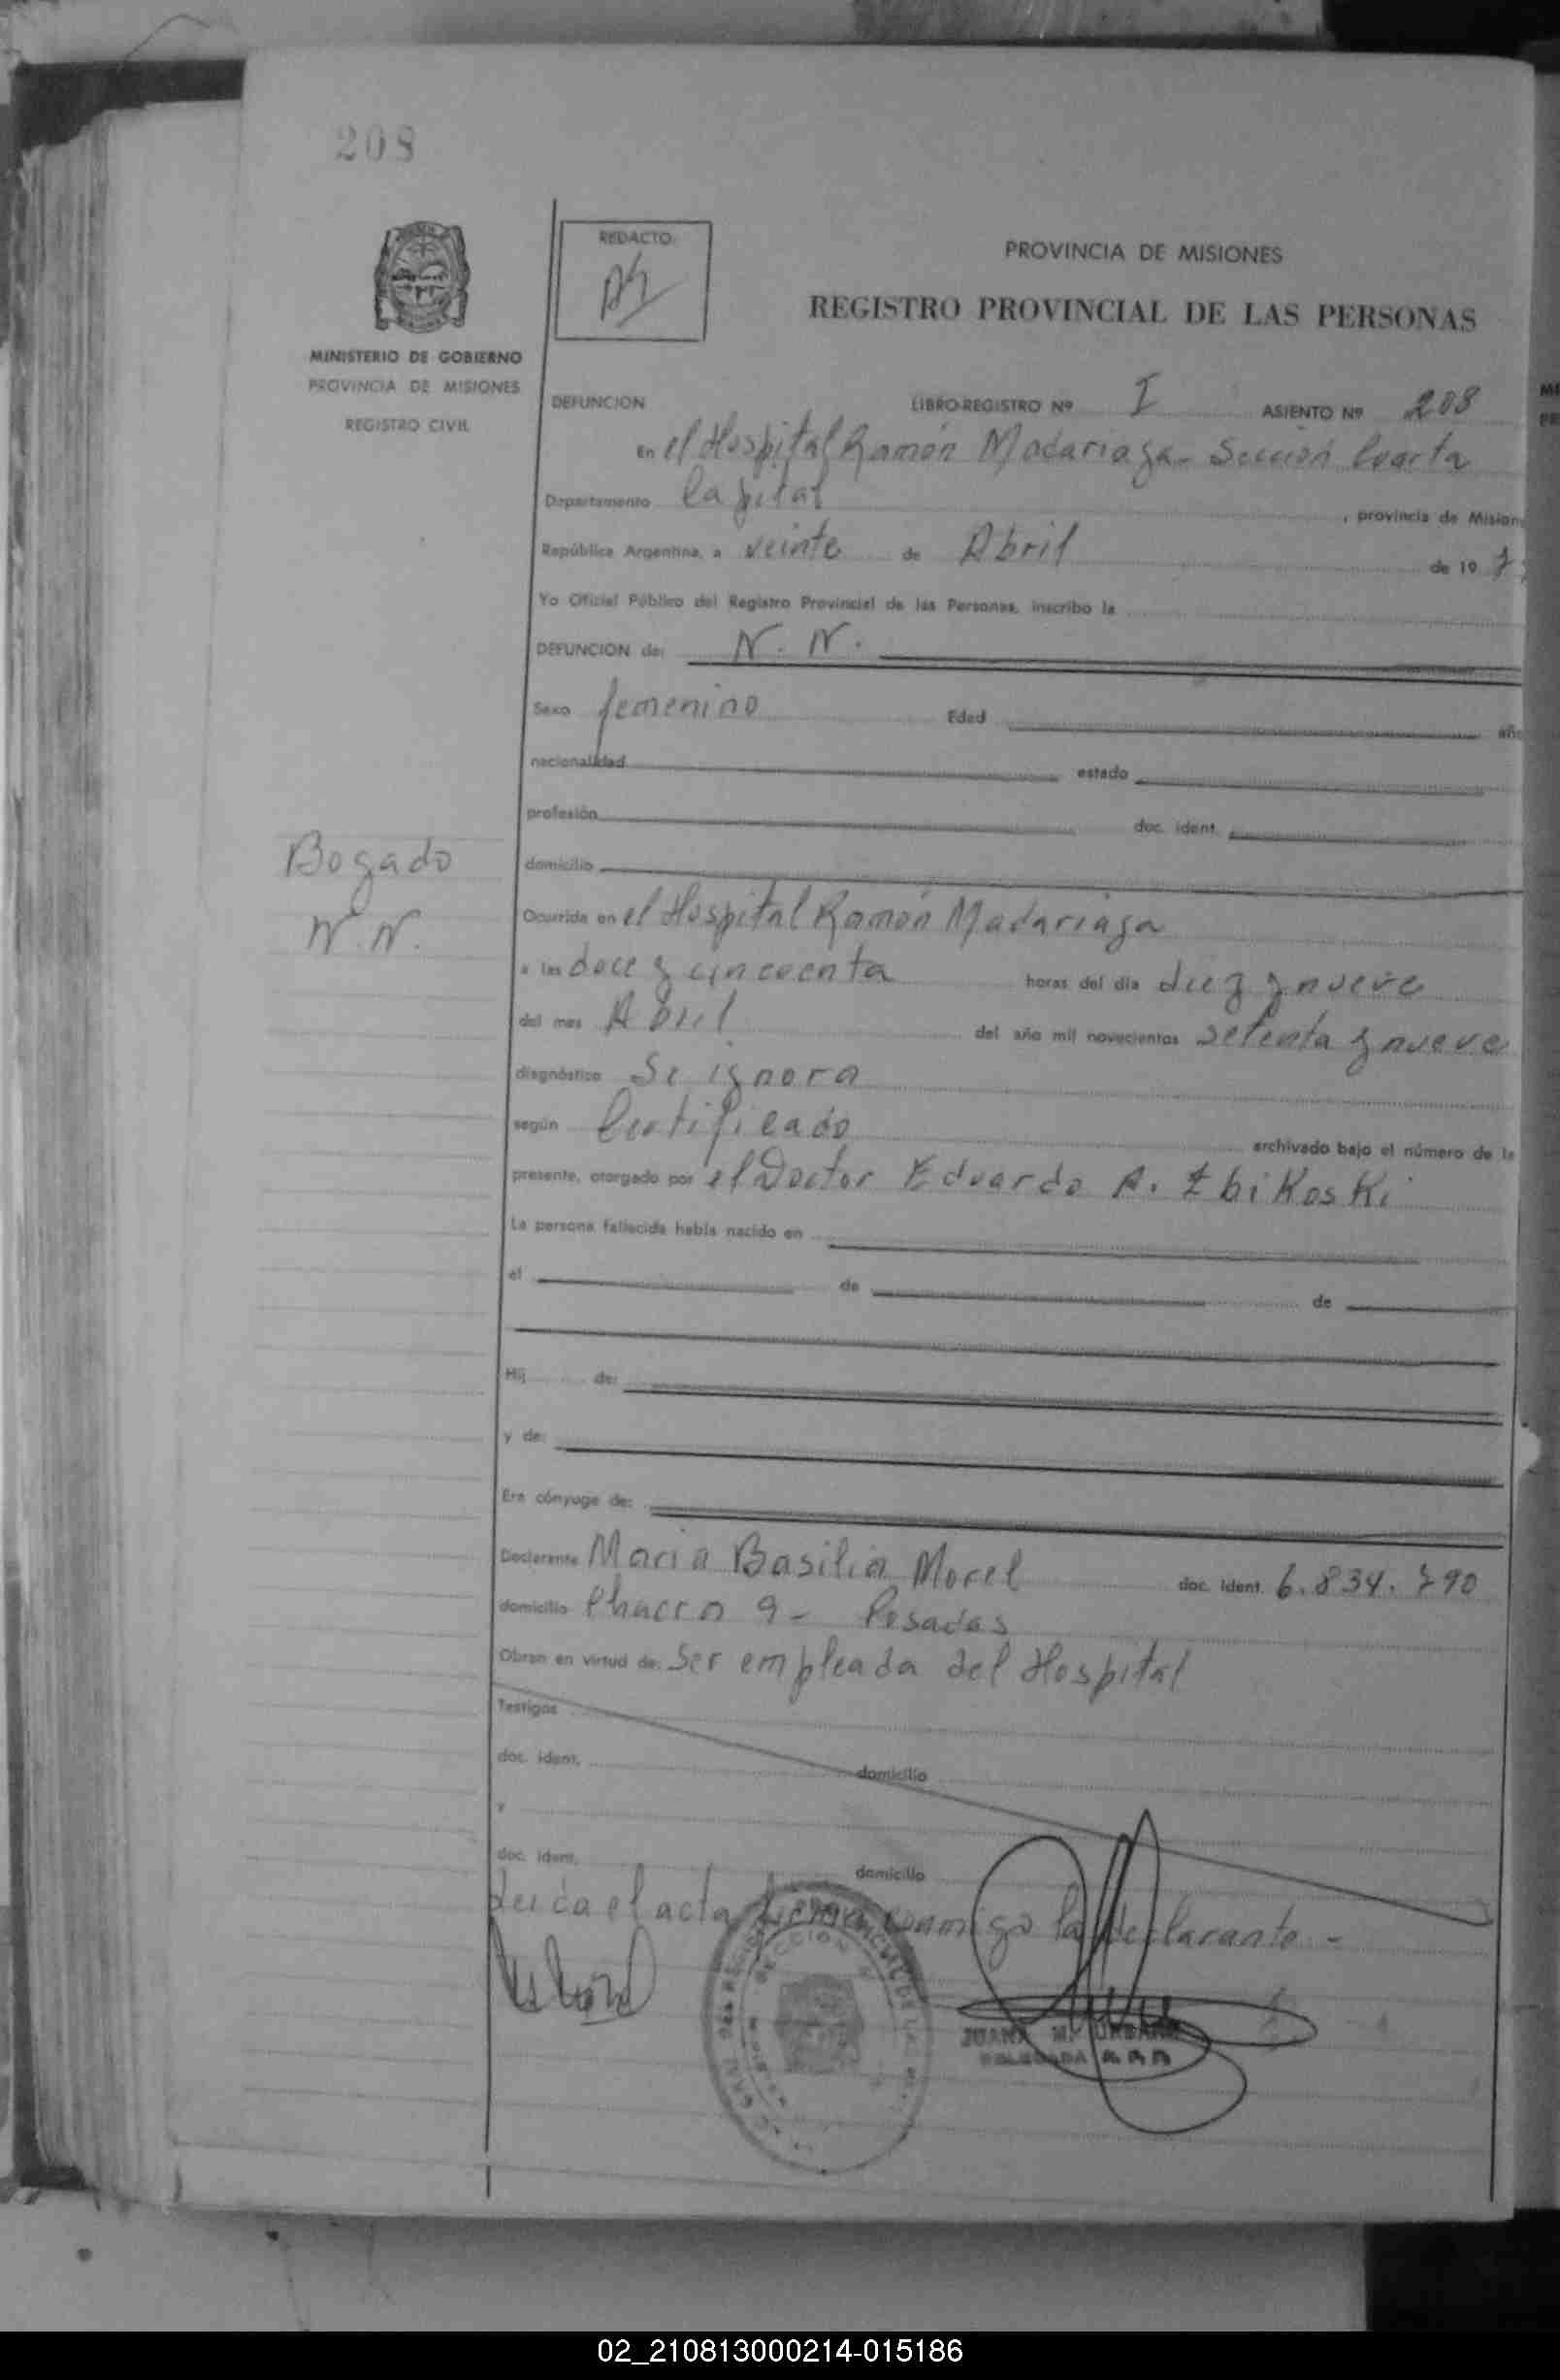 208
REDACTO:
PROVINCIA DE MISIONES
REGISTRO PROVINCIAL DE LAS PERSONAS
MINISTERIO DE GOBIERNO
PROVINCIA DE MISIONES
REGISTRO CIVIL
DEFUNCION LIBRO-REGISTRO Nº I ASIENTO Nº 208
En el Hospital Ramón Madariaga - Sección Cuarta
Departamento Capital , provincia de Mision
República Argentina, a veinte de Abril de 19 7
Yo Oficial Público del Registro Provincial de las Personas, inscribo la
DEFUNCION de: N. N.
Sexo femenino Edad año
nacionalidad estado
profesión doc. ident.
Bogado
N. N.
domicilio
Ocurrida en el Hospital Ramón Madariaga
a las doce y cincuenta horas del día diez y nueve
del mes Abril del año mil novecientos setenta y nueve
diagnóstico Se ignora
según Certificado archivado bajo el número de la
presente, otorgado por el Doctor Eduardo A. Zbikoski
La persona fallecida había nacido en
el de de
Hij de:
y de:
Era cónyuge de:
Declarante Maria Basilia Morel doc. ident. 6.834.790
domicilio Chacra 9 - Posadas
Obran en virtud de: Ser empleada del Hospital
Testigos
doc. ident. domicilio
y
doc. ident. domicilio
Leida el acta firma conmigo la declarante -
SECCION
JUANA M. URBANO
DELEGADA
02_210813000214-015186